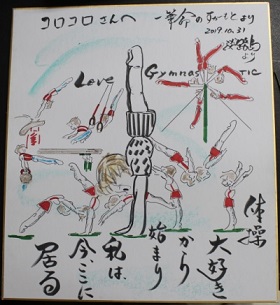 コロコロさんへ
革命のすがもとより
2019.10.31
淡路島より
Love
Gymnastic
体操
大好き
から
始まり
私は、
今、ここに
居る